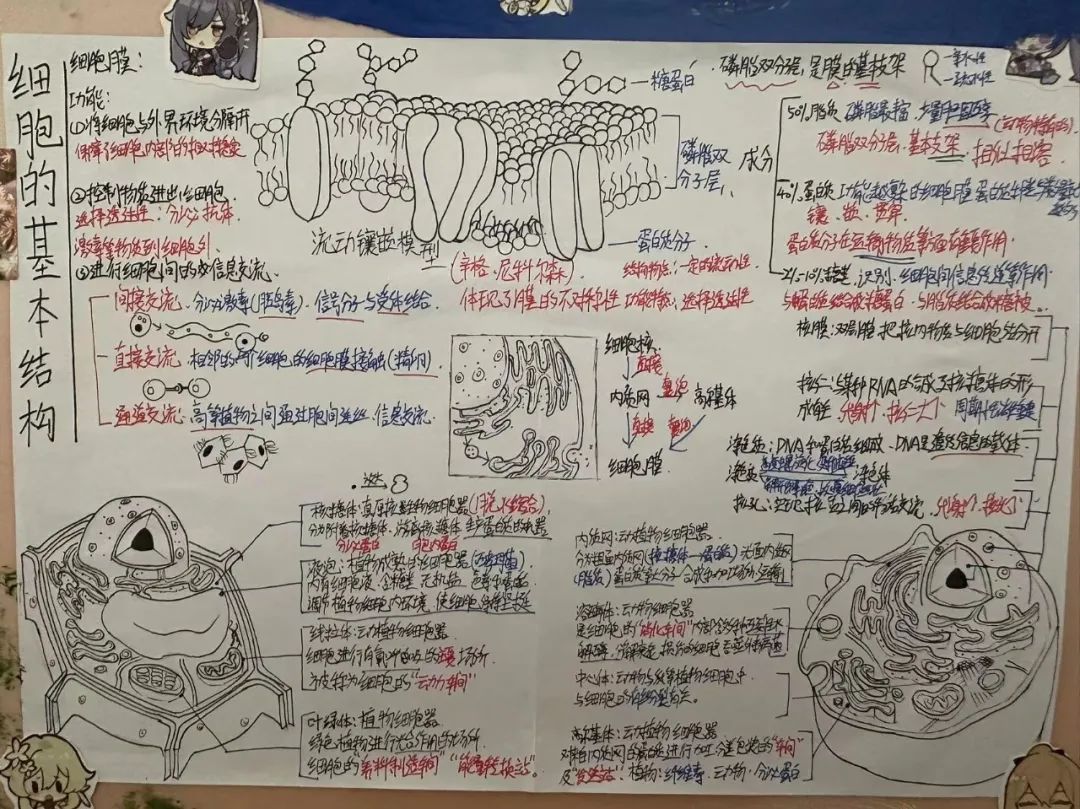 细胞的基本结构
细胞膜：
功能：
①将细胞与外界环境分隔开
保障了细胞内部的相对稳定
②控制物质进出细胞
选择透过性：分泌抗体
激素等物质到细胞外
③进行细胞间的信息交流
间接交流：分泌激素(胰岛素)．信号分子与受体结合
直接交流：相邻的两个细胞的细胞膜接触(精卵)
通道交流：高等植物之间通过胞间连丝．信息交流
糖蛋白
磷脂双
分子层
蛋白质分子
流动镶嵌模型
(辛格·尼科尔森)
结构特点：一定的流动性
体现了膜的不对称性 功能特点：选择透过性
磷脂双分子层，是膜的基本支架
亲水性
疏水性
成分
50%脂质 磷脂最富 少量胆固醇(动物特有)
磷脂双分子层 基本支架 相似相溶
40%蛋白质 功能越复杂的细胞膜 蛋白质种类
镶、嵌、贯穿
蛋白质分子在运输物质等方面有重要作用
2%-10%糖类 识别、细胞间信息传递等作用
与蛋白质结合成糖蛋白 与脂质结合成糖脂
细胞核
直接
内质网 囊泡 高尔基体
直接 囊泡
细胞膜
核膜：双层膜 把核内物质与细胞质分开
核仁：与某种RNA的合成及核糖体的形
成有关 代谢↑ 核仁大↑ 周期性
染色质：DNA和蛋白质组成、DNA是遗传信息的载体
染色质 染色体
核孔：实现核质之间的 交流 代谢↑ 核孔↑
核糖体：真原核动植物细胞器(脱水缩合)
分为附着核糖体、游离核糖体 生产蛋白质的机器
分泌蛋白 胞内蛋白
液泡：植物成熟细胞器
内有细胞液、含糖类、无机盐、色素
调节植物细胞内环境，使细胞保持坚挺
线粒体：动植物细胞器
细胞进行有氧呼吸的主要场所
被称为细胞的“动力车间”
叶绿体：植物细胞器
绿色植物进行光合作用的场所
细胞的“养料制造车间”“能量转换站”。
内质网：动植物细胞器
分粗面内质网
蛋白质等大分子合成加工场所、运输
溶酶体：动植物细胞器
是细胞的“消化车间”内部含多种
水解酶、分解衰老、损伤的细胞器
中心体：动物与低等植物细胞中
与细胞的有丝分裂有关。
高尔基体：动植物细胞器
对来自内质网的蛋白质进行加工分类包装的“车间”
及“发送站”．植物：纤维素．动物：分泌蛋白